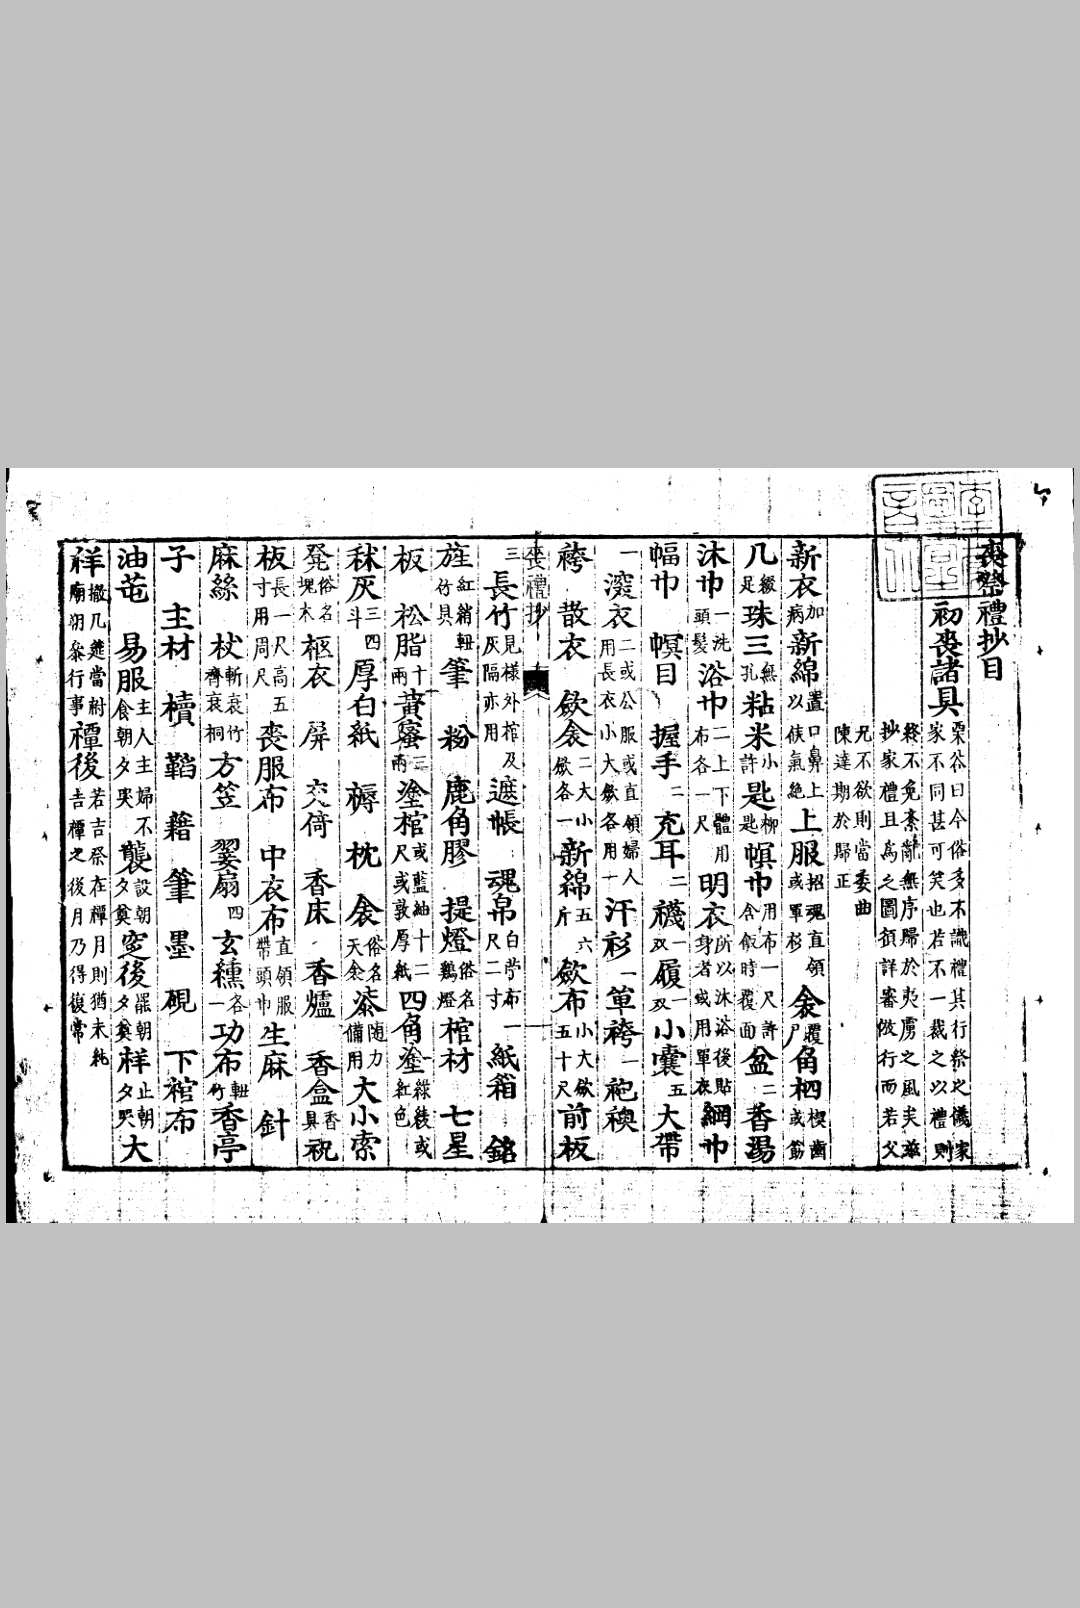 喪祭禮抄目
初喪諸具 栗谷曰今俗多不識禮其行祭之儀家家不同甚可笑也若不一裁之以禮則
終不免紊亂無序歸於夷虜之風矣玆抄家禮且爲之圖須詳審倣行而若父
兄不欲則當委曲陳達期於歸正
新衣加病 新綿置口鼻上以候氣絶 上服或招魂直領單衫 衾覆尸 角柶或楔齒筯
几綴足 珠三無孔 粘米小許 匙柳匙 幎巾用布一尺許含飯時覆面 盆二 香湯
沐巾一洗頭髮 浴巾二上下體用布各一尺 明衣所以沐浴後貼身者或用單衣 網巾
幅巾 幎目 握手二 充耳二 襪一双 履一双 小囊五 大帶
一 深衣二或公服或直領婦人用長衣小大斂各用一 汗衫 單袴一 袍襖
袴 散衣 斂衾二大小斂各一 新綿五六斤 斂布小大斂五十尺 前板
喪禮抄
三 長竹見樣外棺及灰隔亦用 遮帳 魂帛白苧布一尺二寸 紙箱 銘
旌紅綃竹具 䡖 筆 粉 鹿角膠 提燈俗名鷄燈 棺材 七星
板 松脂十兩 黃蜜二兩 塗棺或藍紬十二尺或敦厚紙 四角塗綵綾或紅色
秫灰三四斗 厚白紙 褥 枕 衾俗名天衾 漆隨力備用 大小索
凳俗名塊木 柩衣 屏 交倚 香床 香爐 香盒香具 祝
板長一尺高五寸用周尺 喪服布 中衣布直領服帶頭巾 生麻 針
麻絲 杖斬衰竹齊衰桐 方笠 翣扇四 玄纁各一 功布䡖竹 香亭
子 主材 櫝 韜 藉 筆 墨 硯 下棺布
油芚 易服主人主婦不食朝夕哭 襲設朝夕奠 窆後罷朝夕奠 祥止朝夕哭 大
祥撤几筵當祔廟朔參行事 禫後若吉祭在禫月則猶未純吉禫之後月乃得復常